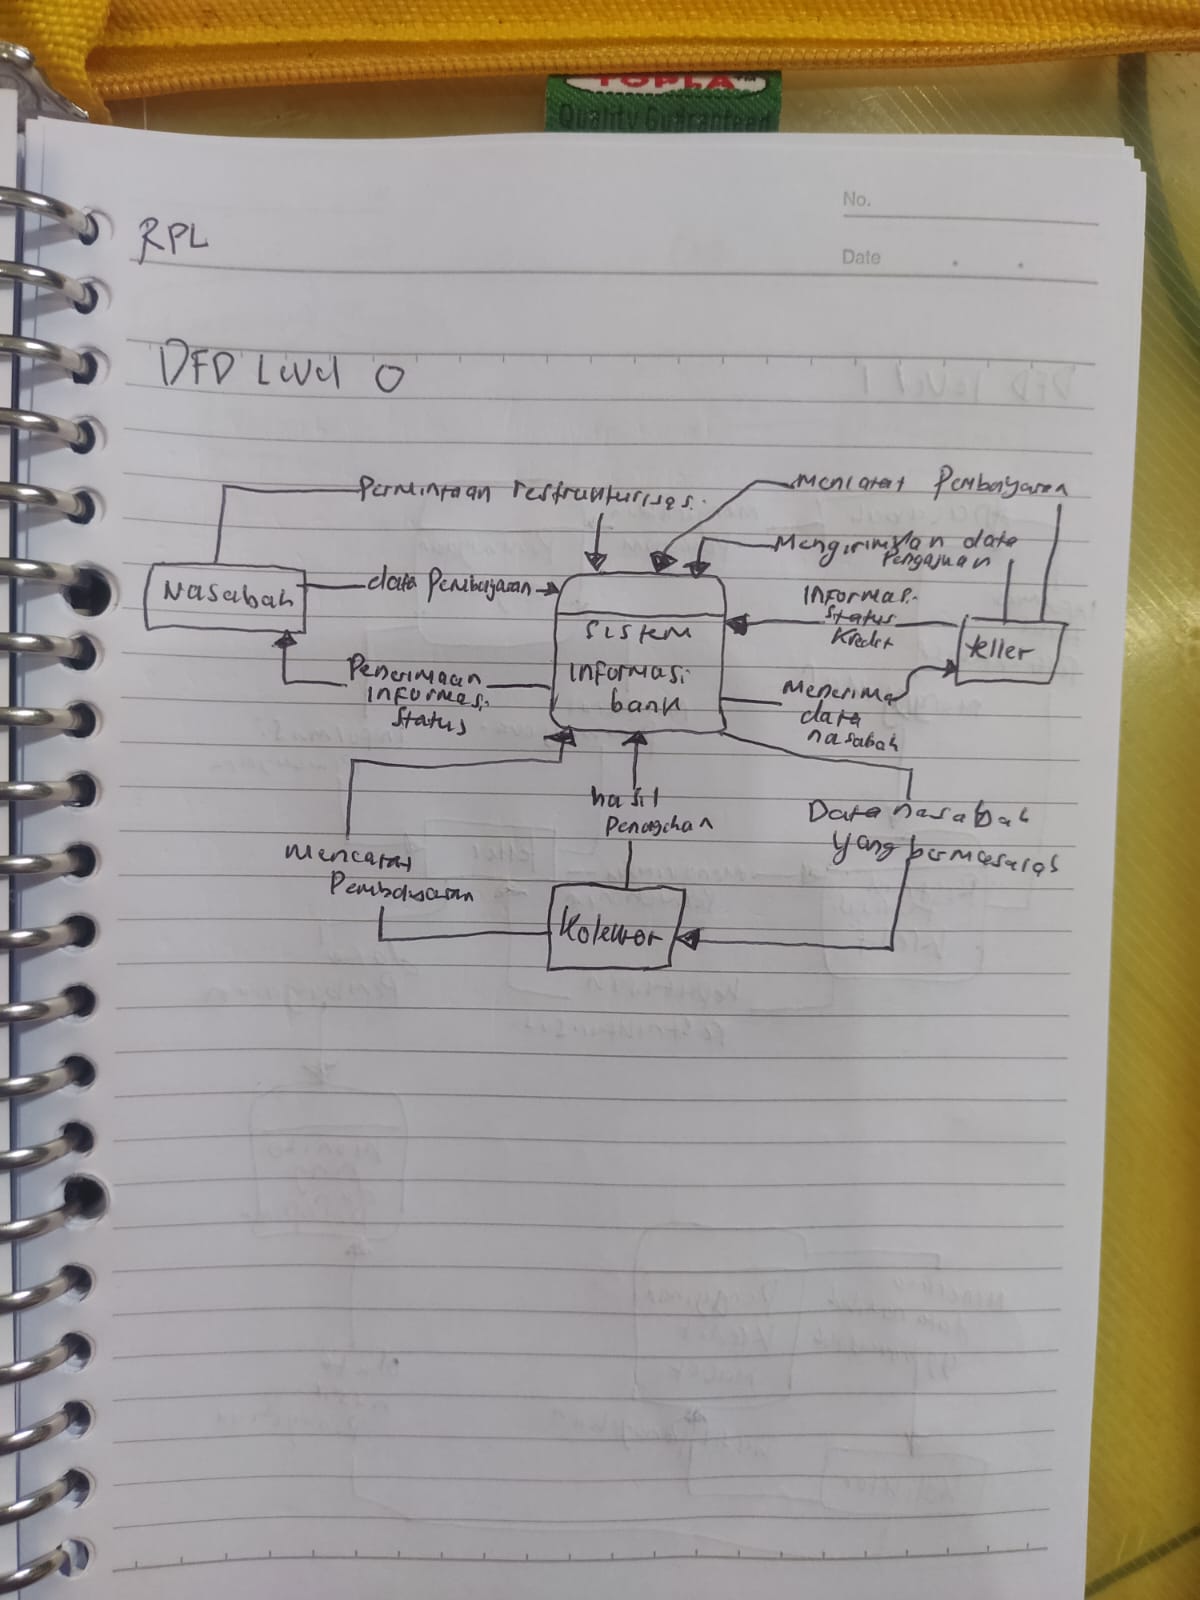 TOPLA™
Quality Guaranteed
No.
RPL
Date
DFD Level 0
Permintaan restrukturisasi
Mencatat Pembayaran
Mengirimkan data
Pengajuan
Nasabah
data Pembayaran
Informasi
Status
Kredit
Sistem
Informasi
bank
teller
Penerimaan
Informasi
Status
Menerima
data
nasabah
hasil
Penagihan
Data nasabah
yang bermasalah
Mencatat
Pembayaran
Kolektor